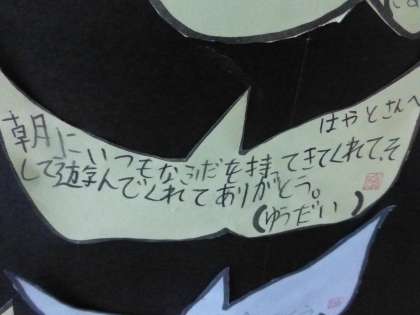 はやとさんへ
朝にいつもなふだを持ってきてくれて、そ
して遊んでくれてありがとう。
(ゆうだい)